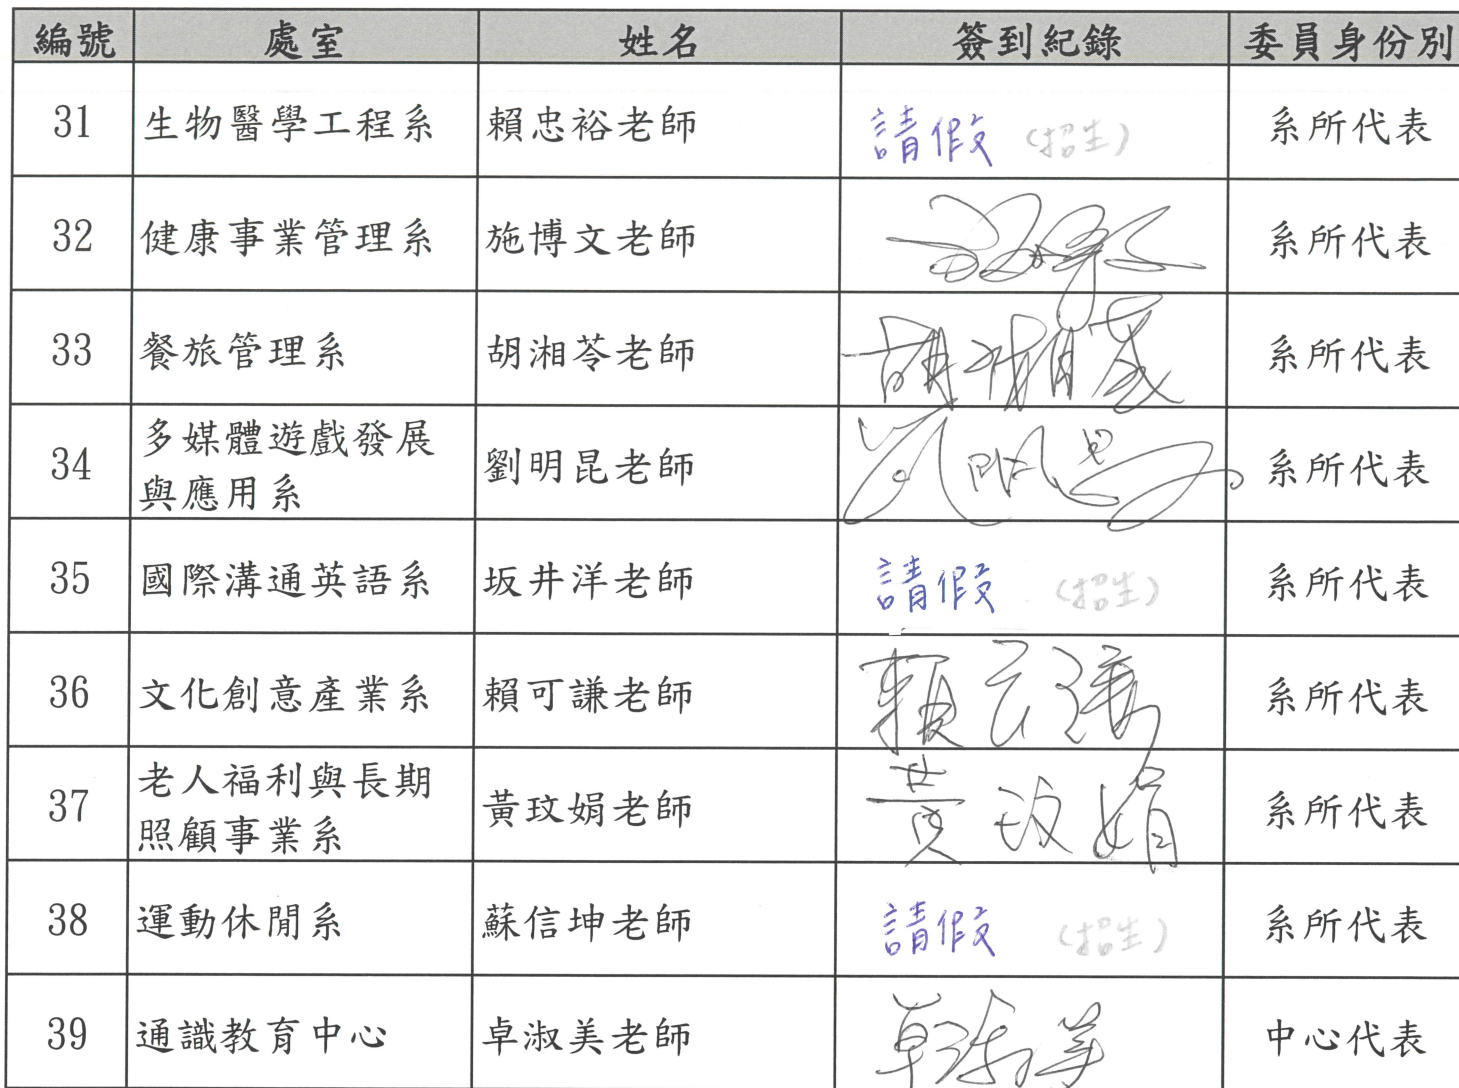 編號 處室 姓名 簽到紀錄 委員身份別
31 生物醫學工程系 賴忠裕老師 請假 (招生) 系所代表
32 健康事業管理系 施博文老師 施博文 系所代表
33 餐旅管理系 胡湘苓老師 胡湘苓 系所代表
34 多媒體遊戲發展
與應用系 劉明昆老師 劉明昆 系所代表
35 國際溝通英語系 坂井洋老師 請假 (招生) 系所代表
36 文化創意產業系 賴可謙老師 賴可謙 系所代表
37 老人福利與長期
照顧事業系 黃玟娟老師 黃玟娟 系所代表
38 運動休閒系 蘇信坤老師 請假 (招生) 系所代表
39 通識教育中心 卓淑美老師 卓淑美 中心代表